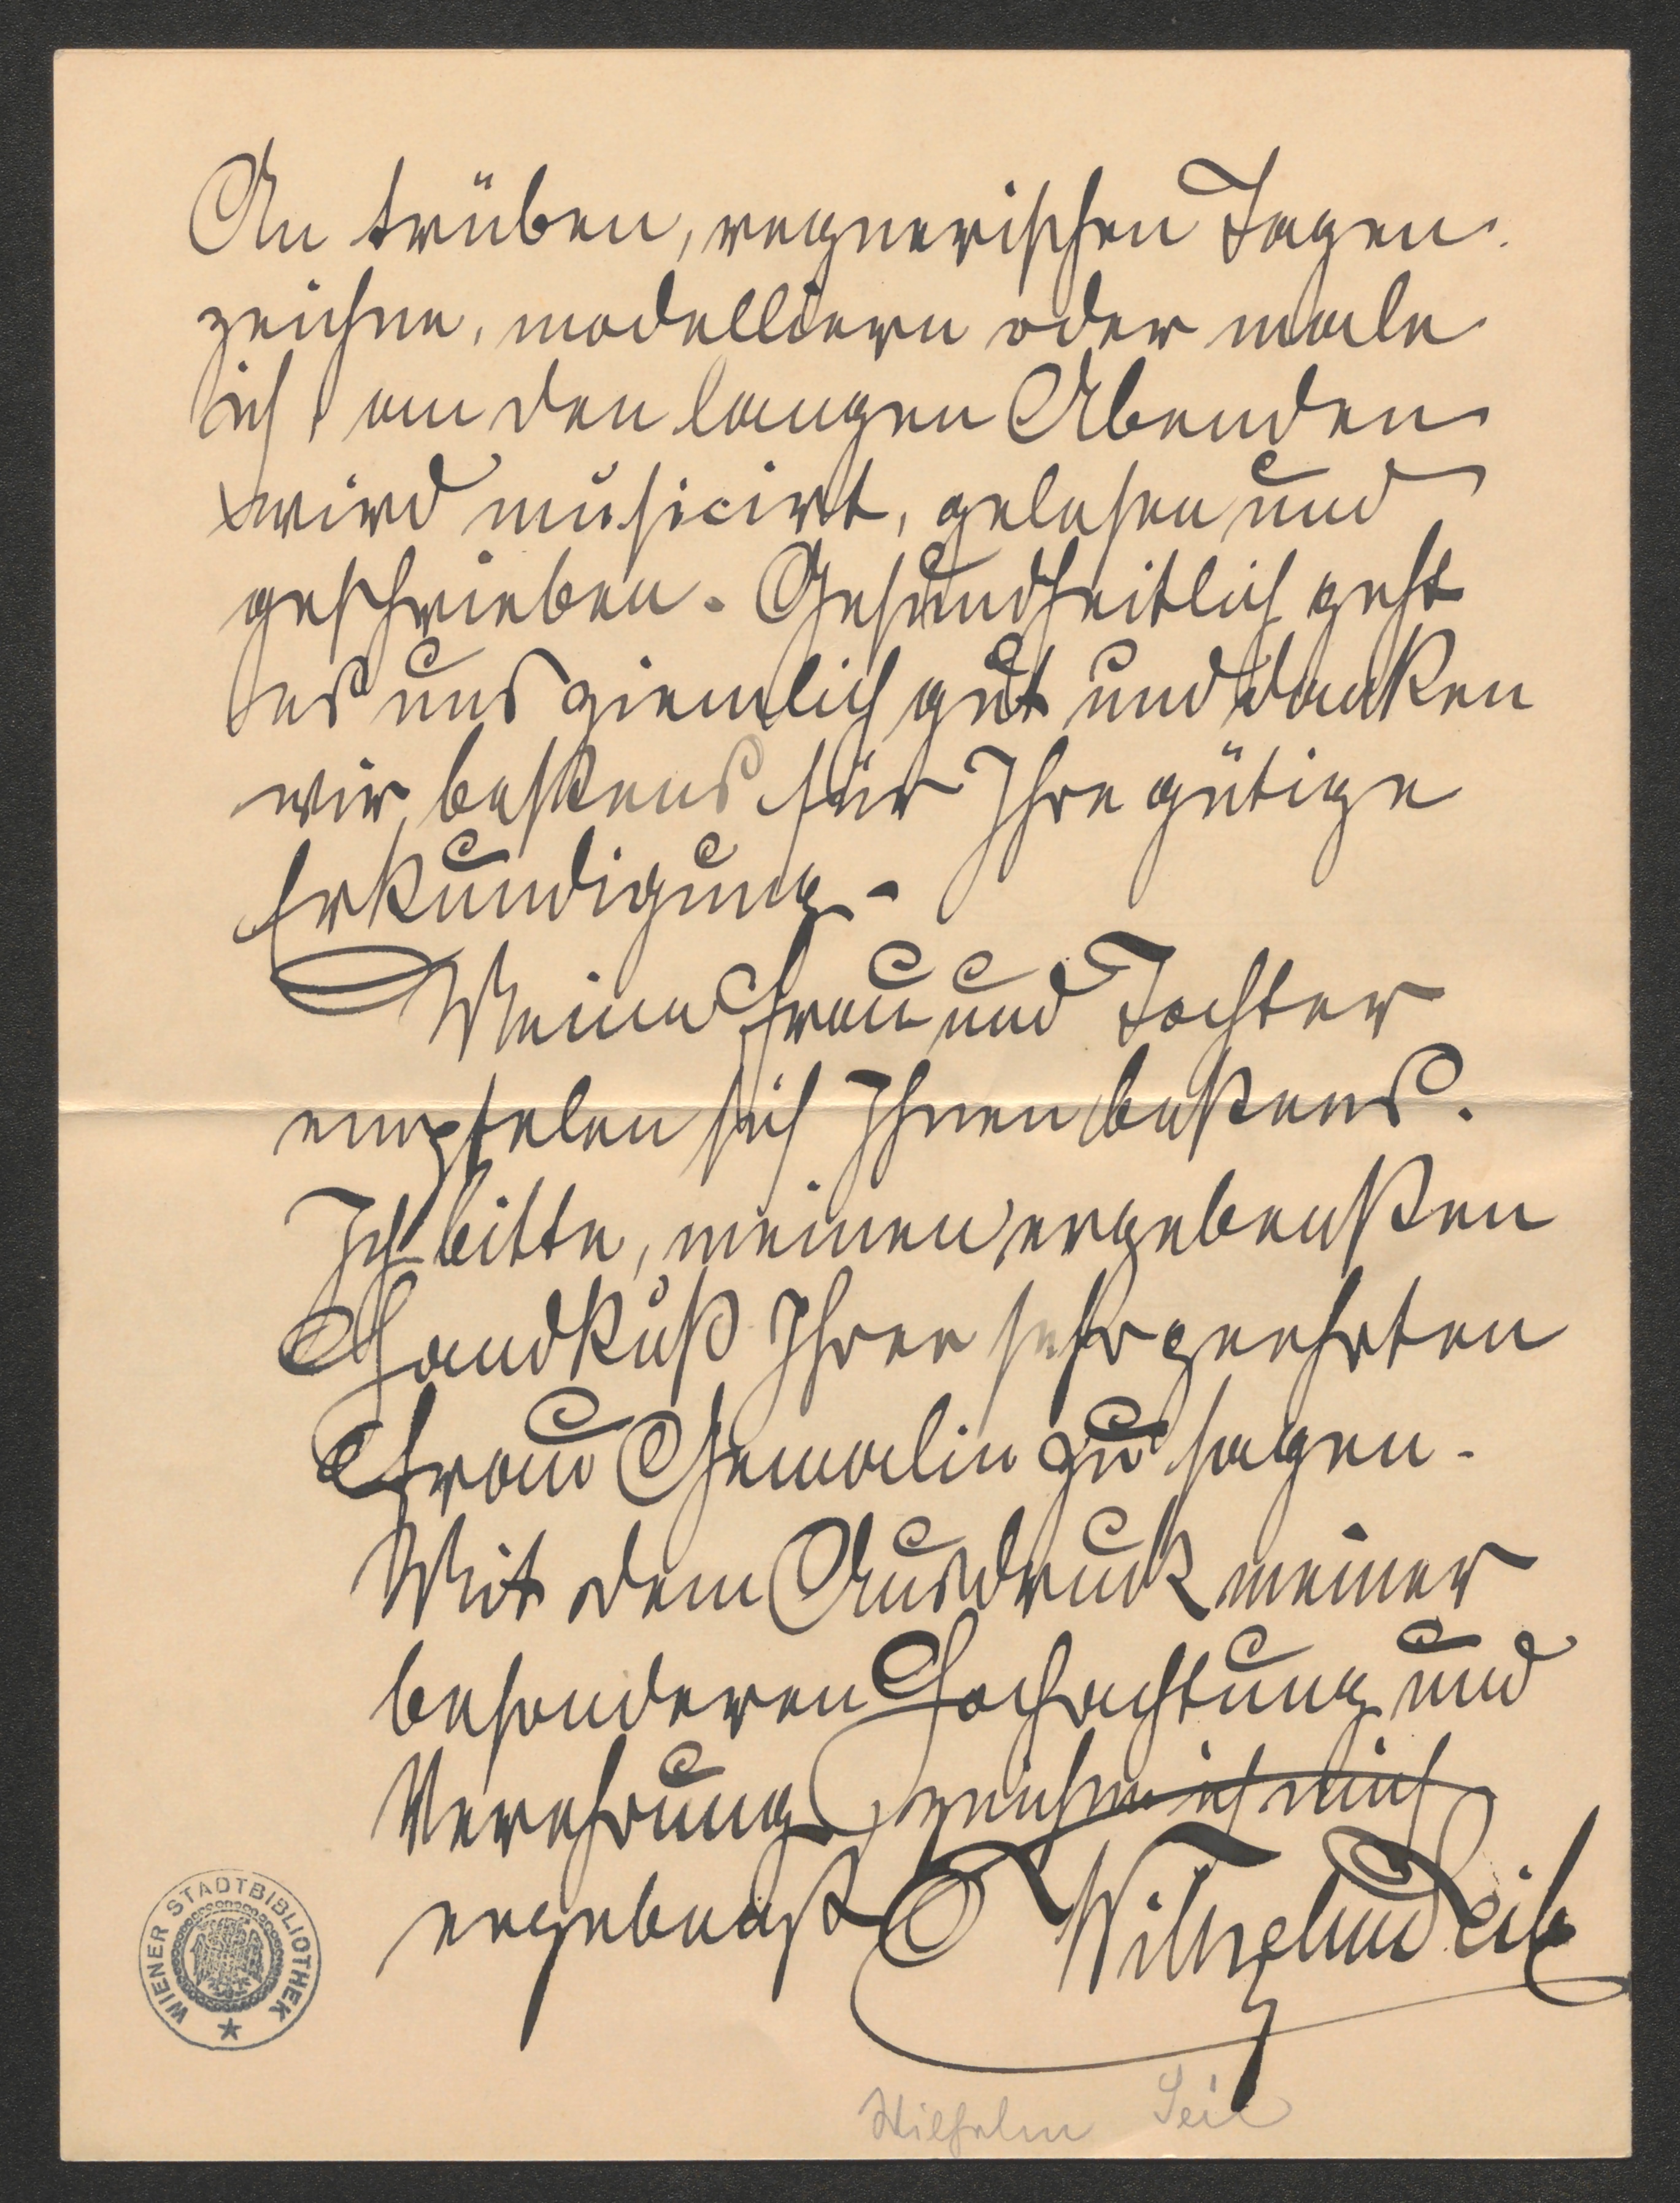 An trüben, regnerischen Tagen
zeichne, modelliere oder male
ich, an den langen Abenden
wird musicirt, gelesen und
geschrieben. Gesundheitlich geht
es uns ziemlich gut und danken
wir bestens für Ihre gütige
Erkundigung.
Meine Frau und Tochter
empfelen sich Ihnen bestens.
Ich bitte, meinen ergebensten
Handkuß Ihrer sehrgeehrten
Frau Gemalin zu sagen.
Mit dem Ausdruck meiner
besonderen Hochachtung und
Verehrung zeichne ich mich
ergebenst Wilhelm Seib
WIENER STADTBIBLIOTHEK
Wilhelm Seib